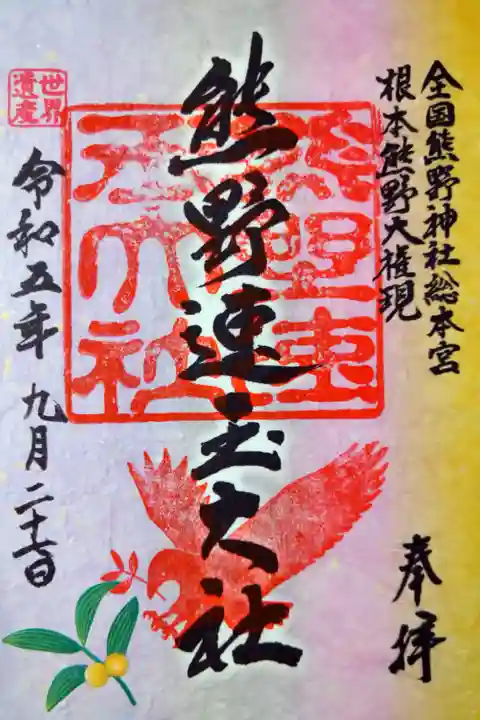 全国熊野神社総本宮
根本熊野大権現
奉拝
熊野速玉大社
世界
遺産
令和五年九月二十七日